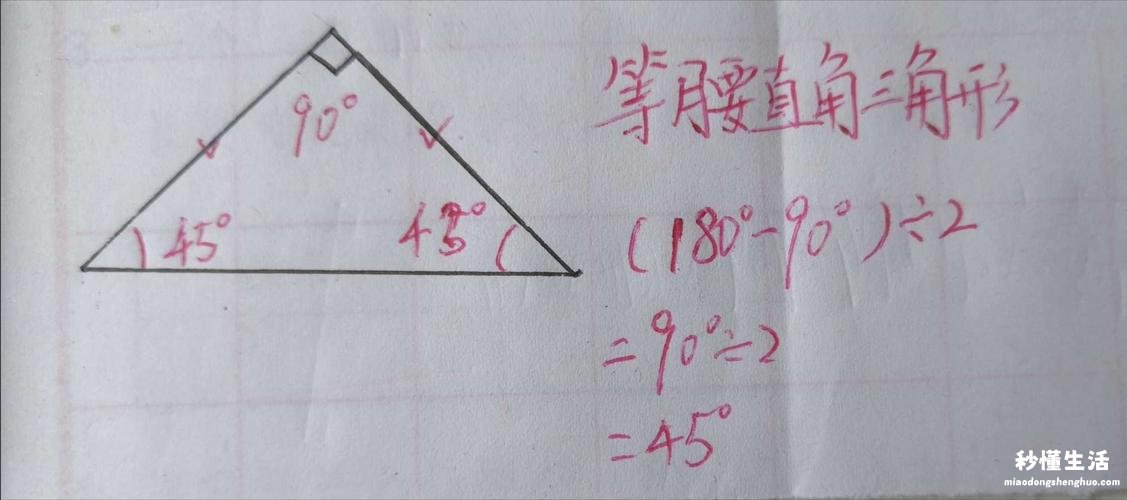 等腰直角三角形
90°
45°
45°
(180°-90°)÷2
=90°÷2
=45°
秒懂生活
miaodongshenghuo.com